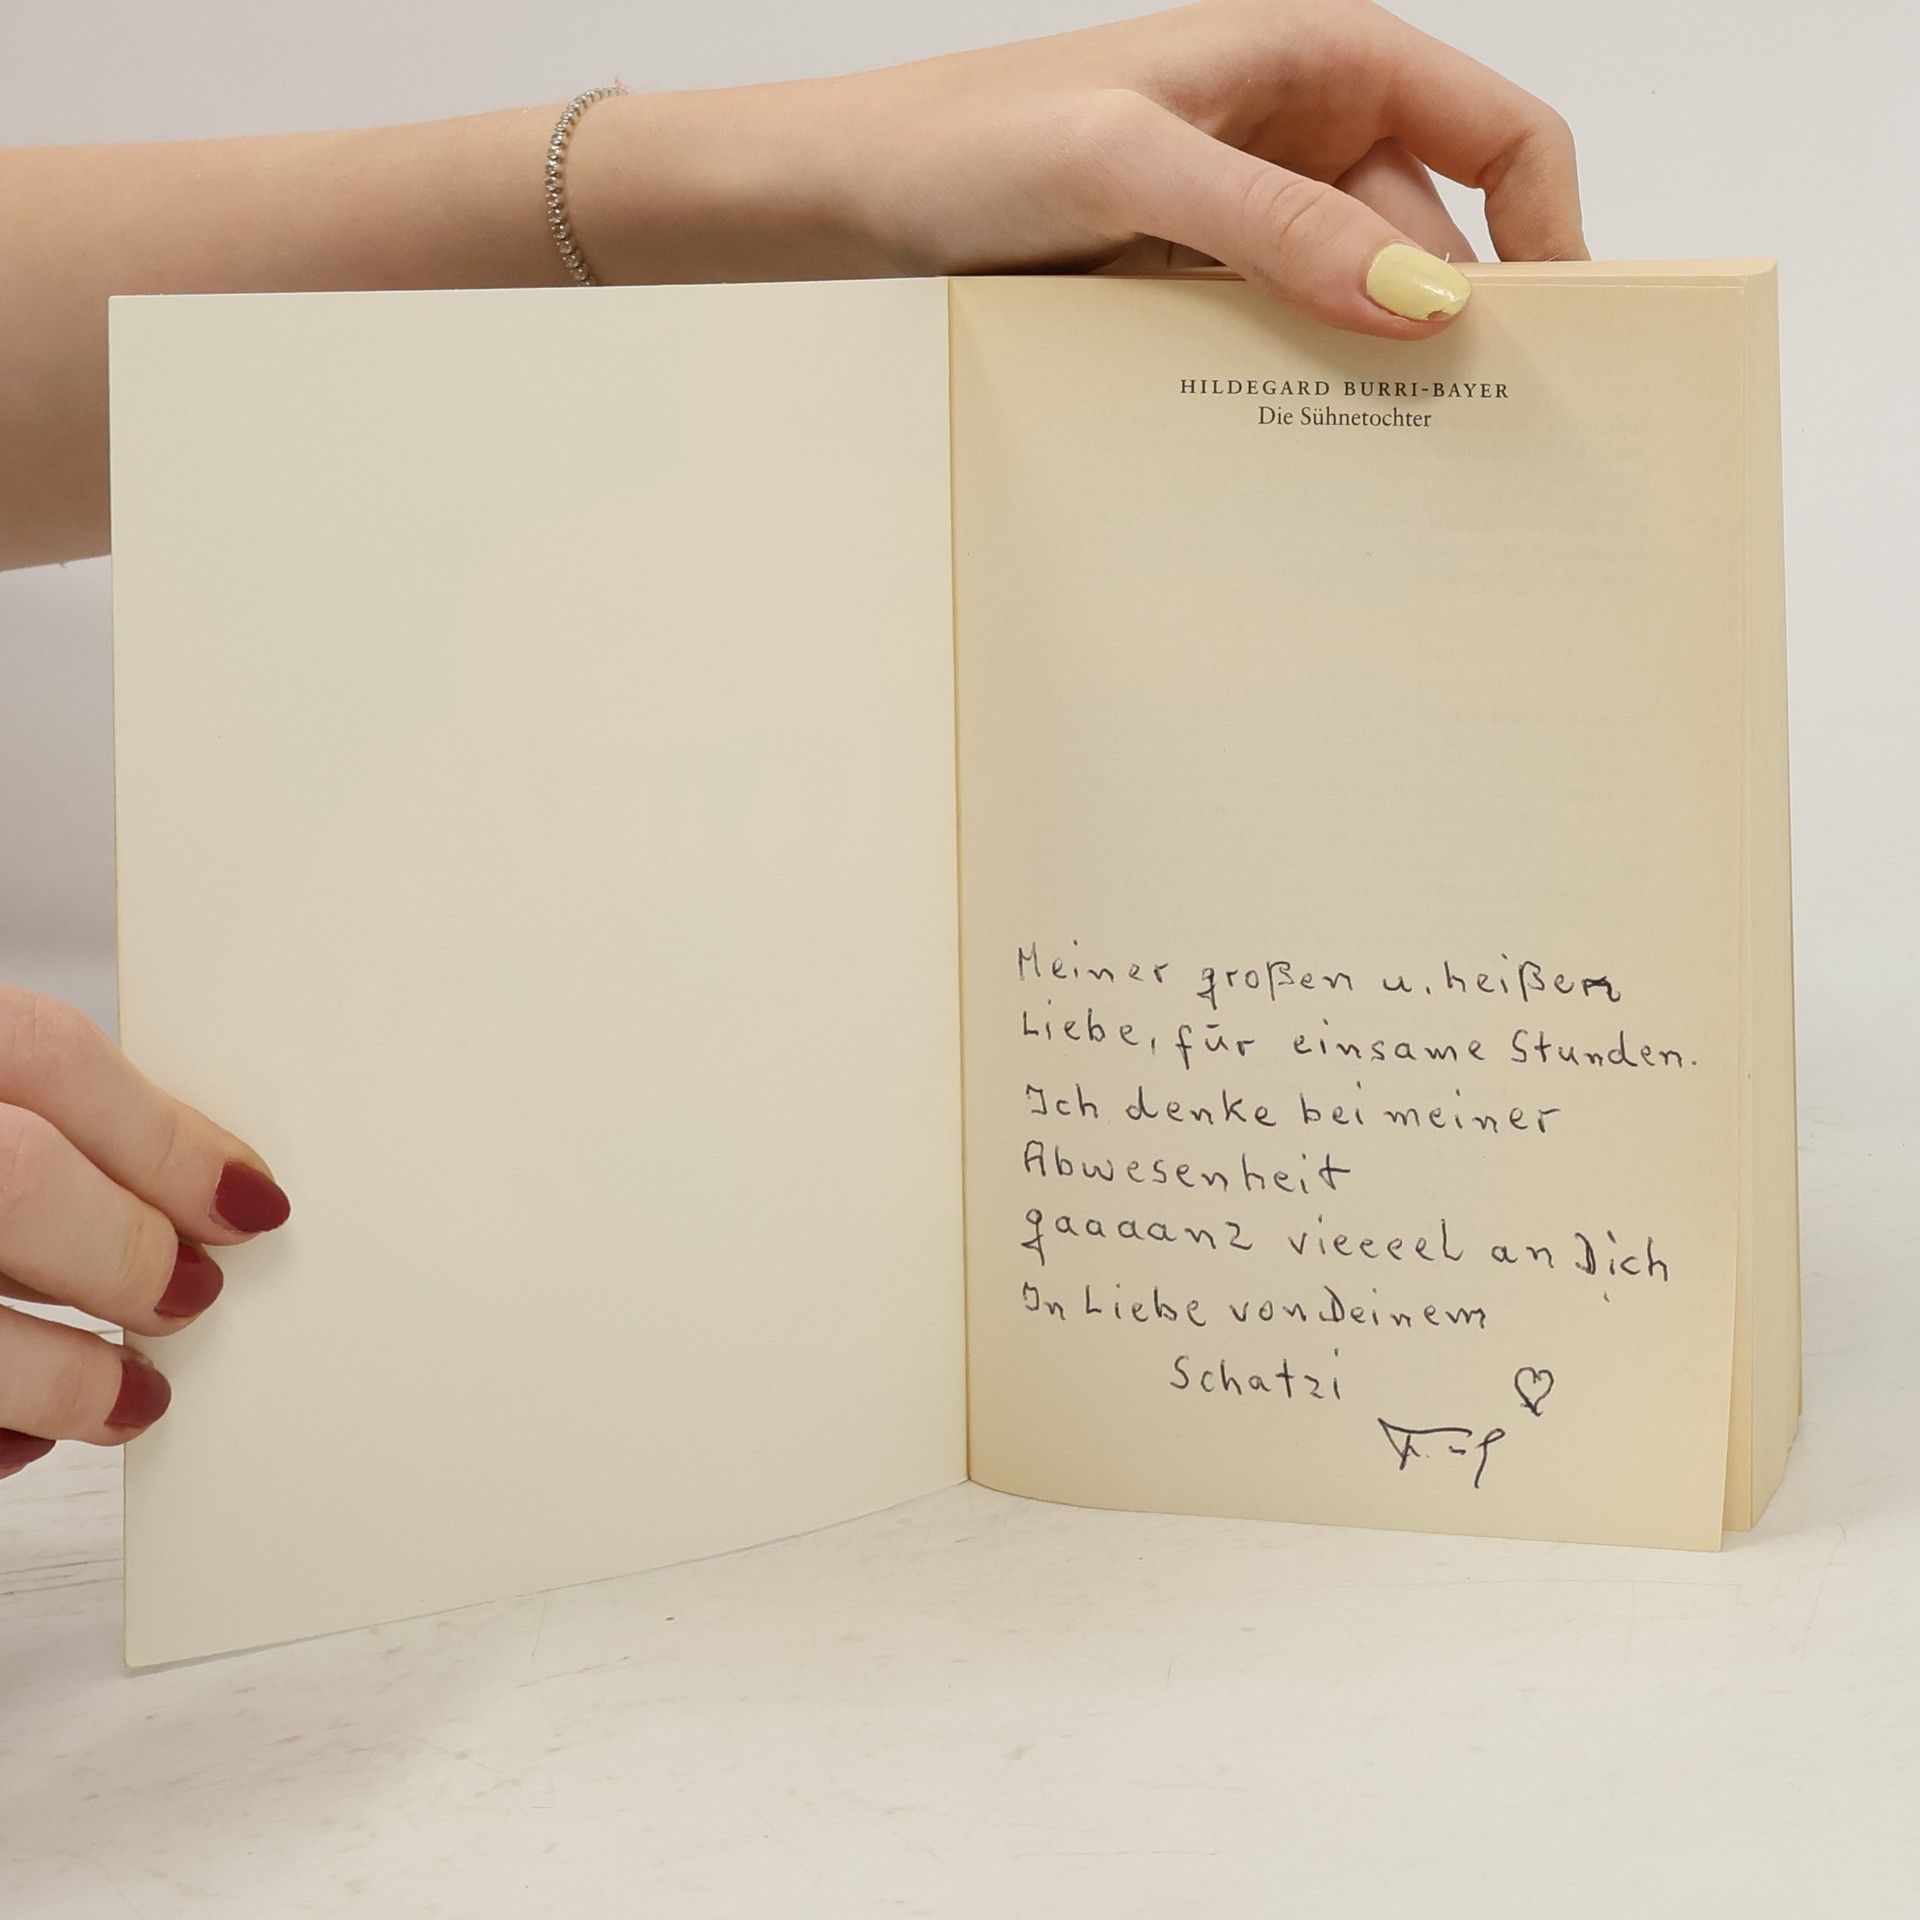 HILDEGARD BURRI-BAYER
Die Sühnetochter
Meiner großen u. heißen
Liebe, für einsame Stunden.
Ich denke bei meiner
Abwesenheit
gaaaanz vieeeel an Dich
In Liebe von Deinem
Schatzi